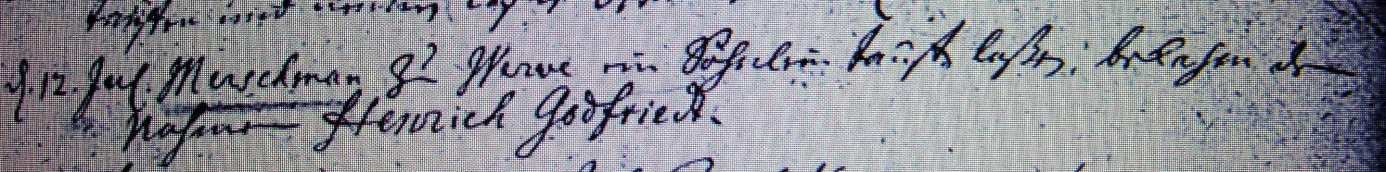 und
d. 12. Jul. Merschman zu Werve ein Söhnlein taufen laßen, bekahm den
Nahmen Henrich Godfriedt.